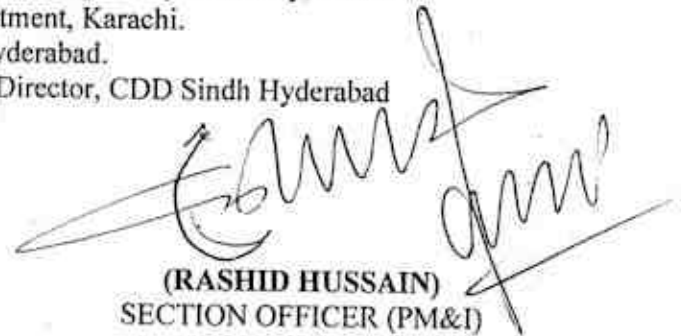 tment, Karachi.
yderabad.
Director, CDD Sindh Hyderabad
(RASHID HUSSAIN)
SECTION OFFICER (PM&I)